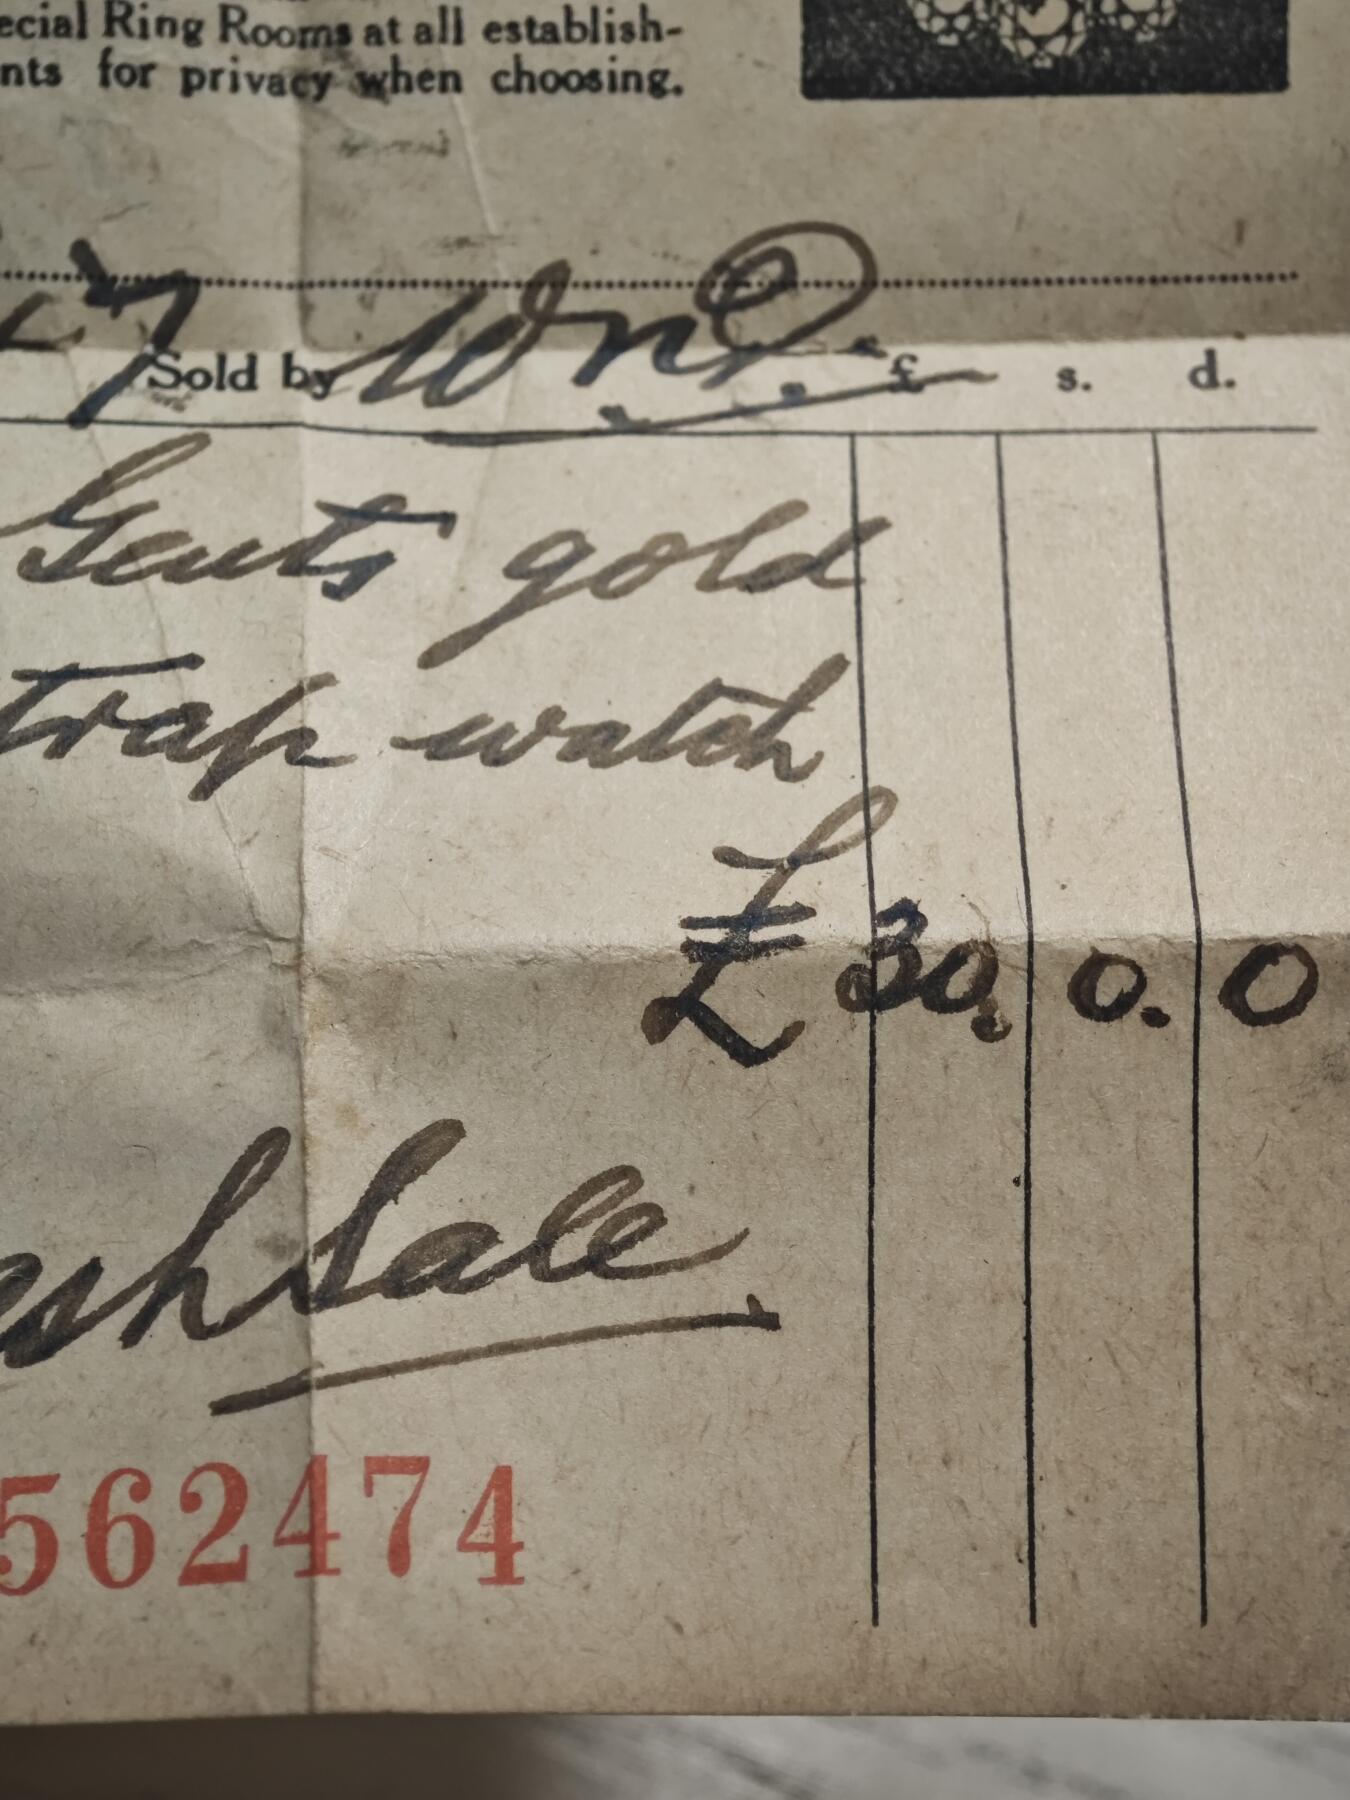 ecial Ring Rooms at all establish-
nts for privacy when choosing.
7 Sold by £ s. d.
Gents gold
trap watch
£30. 0. 0
ash Sale
562474